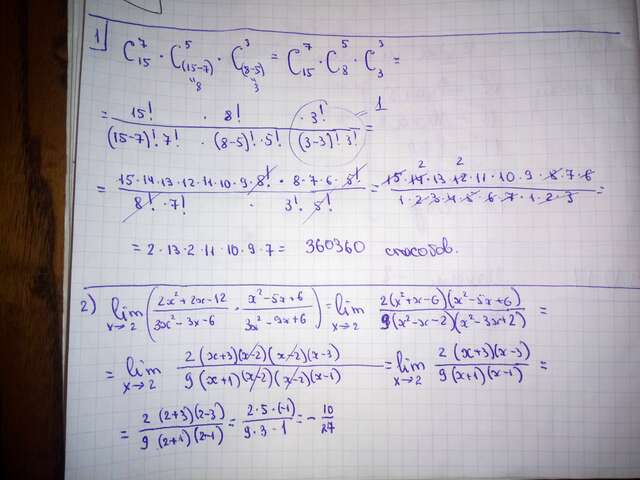 1) C₁₅⁷ · C₍₁₅₋₇₎⁵ · C₍₈₋₅₎³ = C₁₅⁷ · C₈⁵ · C₃³ =
"8 "3
= 15! / (15-7)!·7! · 8! / (8-5)!·5! · 3! / (3-3)!·3! =
= 1
= 15·14·13·12·11·10·9·8!·8·7·6·5! / 8!·7! · 3!·5! = 15·14·13·12·11·10·9·8·7·6 / 1·2·3·4·5·6·7·1·2·3 =
2 2
= 2·13·2·11·10·9·7 = 360360 способов.
2) lim x→2 (2x²+2x-12 / 3x²-3x-6 · x²-5x+6 / 3x²-9x+6) = lim x→2 2(x²+x-6)(x²-5x+6) / 9(x²-x-2)(x²-3x+2) =
= lim x→2 2(x+3)(x-2)(x-2)(x-3) / 9(x+1)(x-2)(x-2)(x-1) = lim x→2 2(x+3)(x-3) / 9(x+1)(x-1) =
= 2(2+3)(2-3) / 9(2+1)(2-1) = 2·5·(-1) / 9·3·1 = - 10 / 27